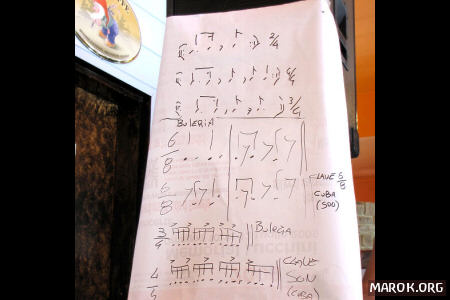 2/4
4/4
3/4
BULERIA
6/8
6/8
CLAVE 6/8
CUBA
(SOO)
3/4 BULERIA
4/5 CLAVE
SON
(CUBA)
MAROK.ORG